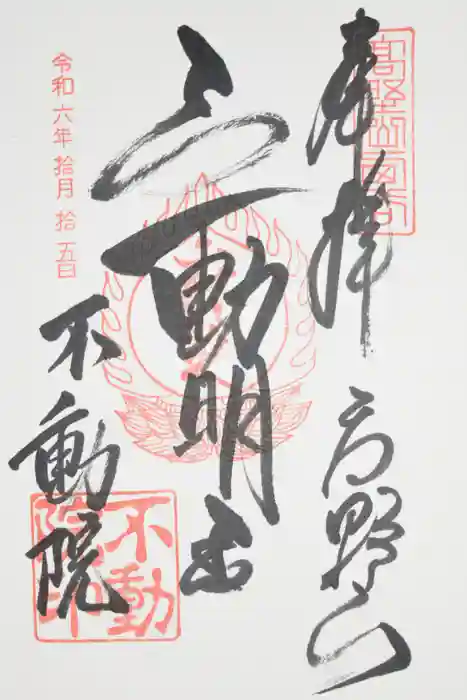 奉拝 高野山
不動明王
不動院
令和六年 拾月 拾五日
不動院印